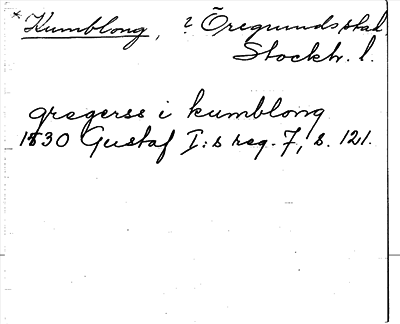 * Kumblong, ? Öregrunds skal.
Stockh. l.
gregerss i kumblong
1530 Gustaf I:s reg. 7, s. 121.